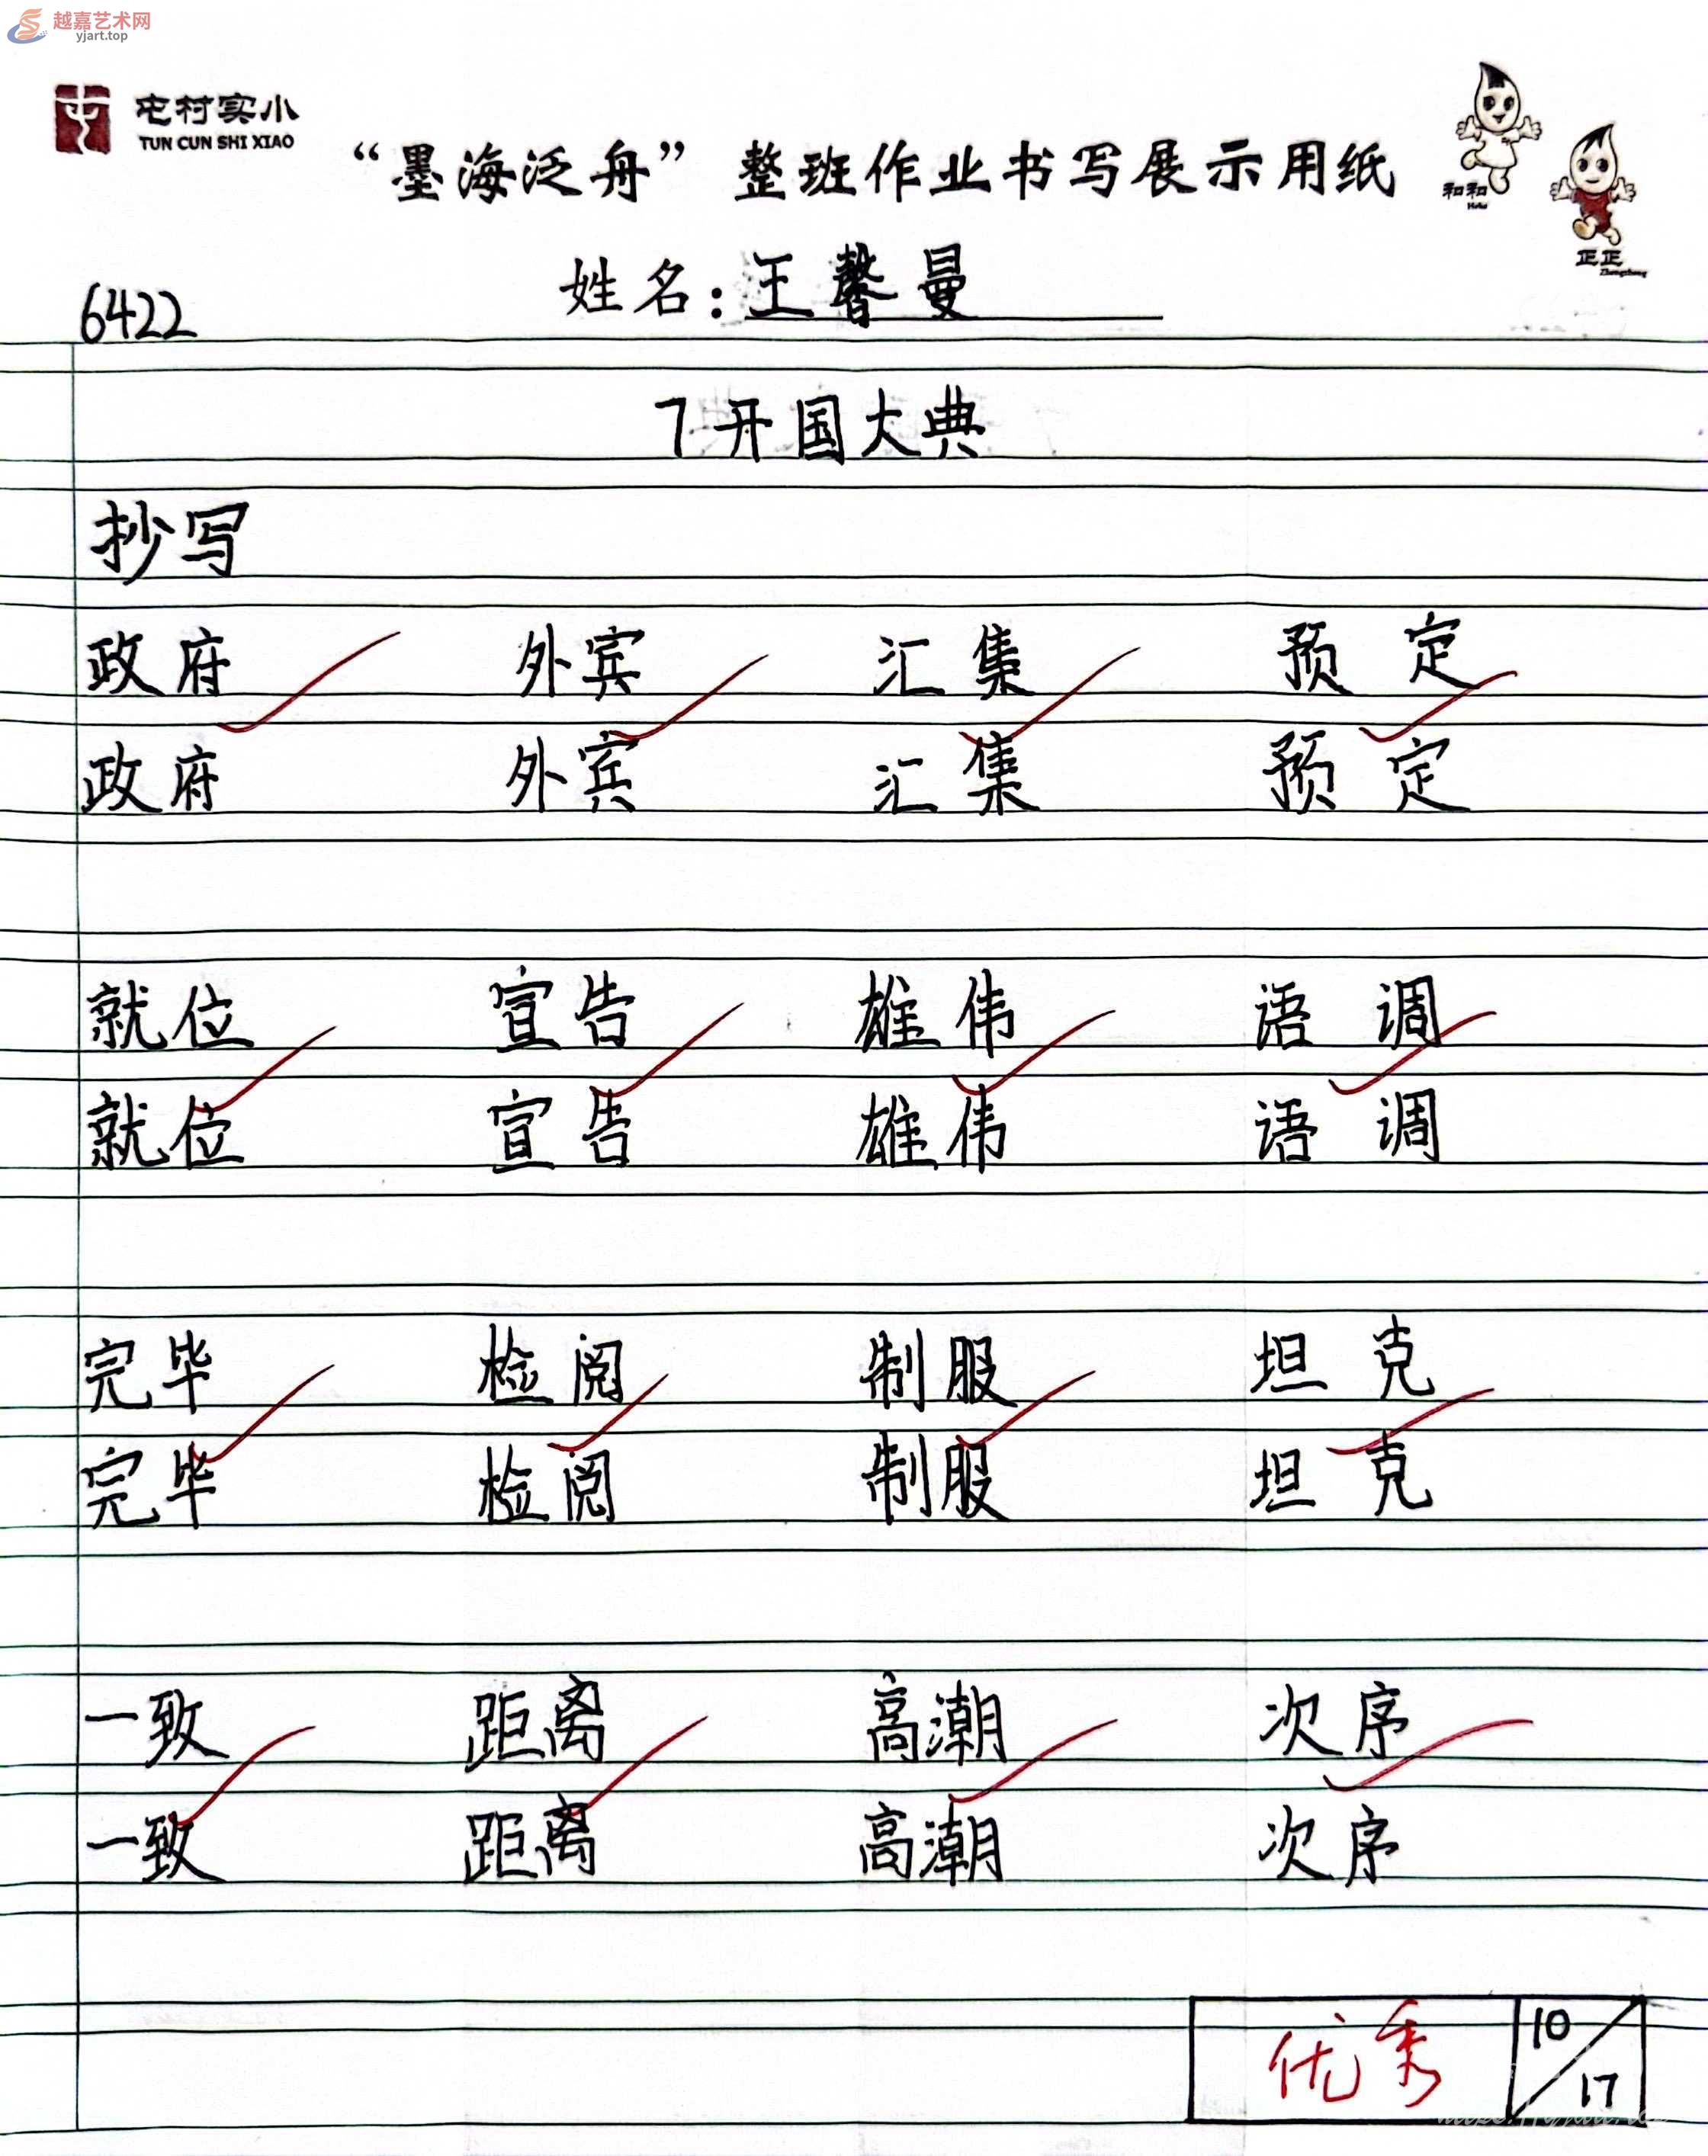 越嘉艺术网
yjart.top
屯村实小
TUN CUN SHI XIAO
“墨海泛舟”整班作业书写展示用纸
和和
正正
姓名：王馨曼
6422
7 开国大典
抄写
政府 外宾 汇集 预定
政府 外宾 汇集 预定
就位 宣告 雄伟 语调
就位 宣告 雄伟 语调
完毕 检阅 制服 坦克
完毕 检阅 制服 坦克
一致 距离 高潮 次序
一致 距离 高潮 次序
优秀 10/17